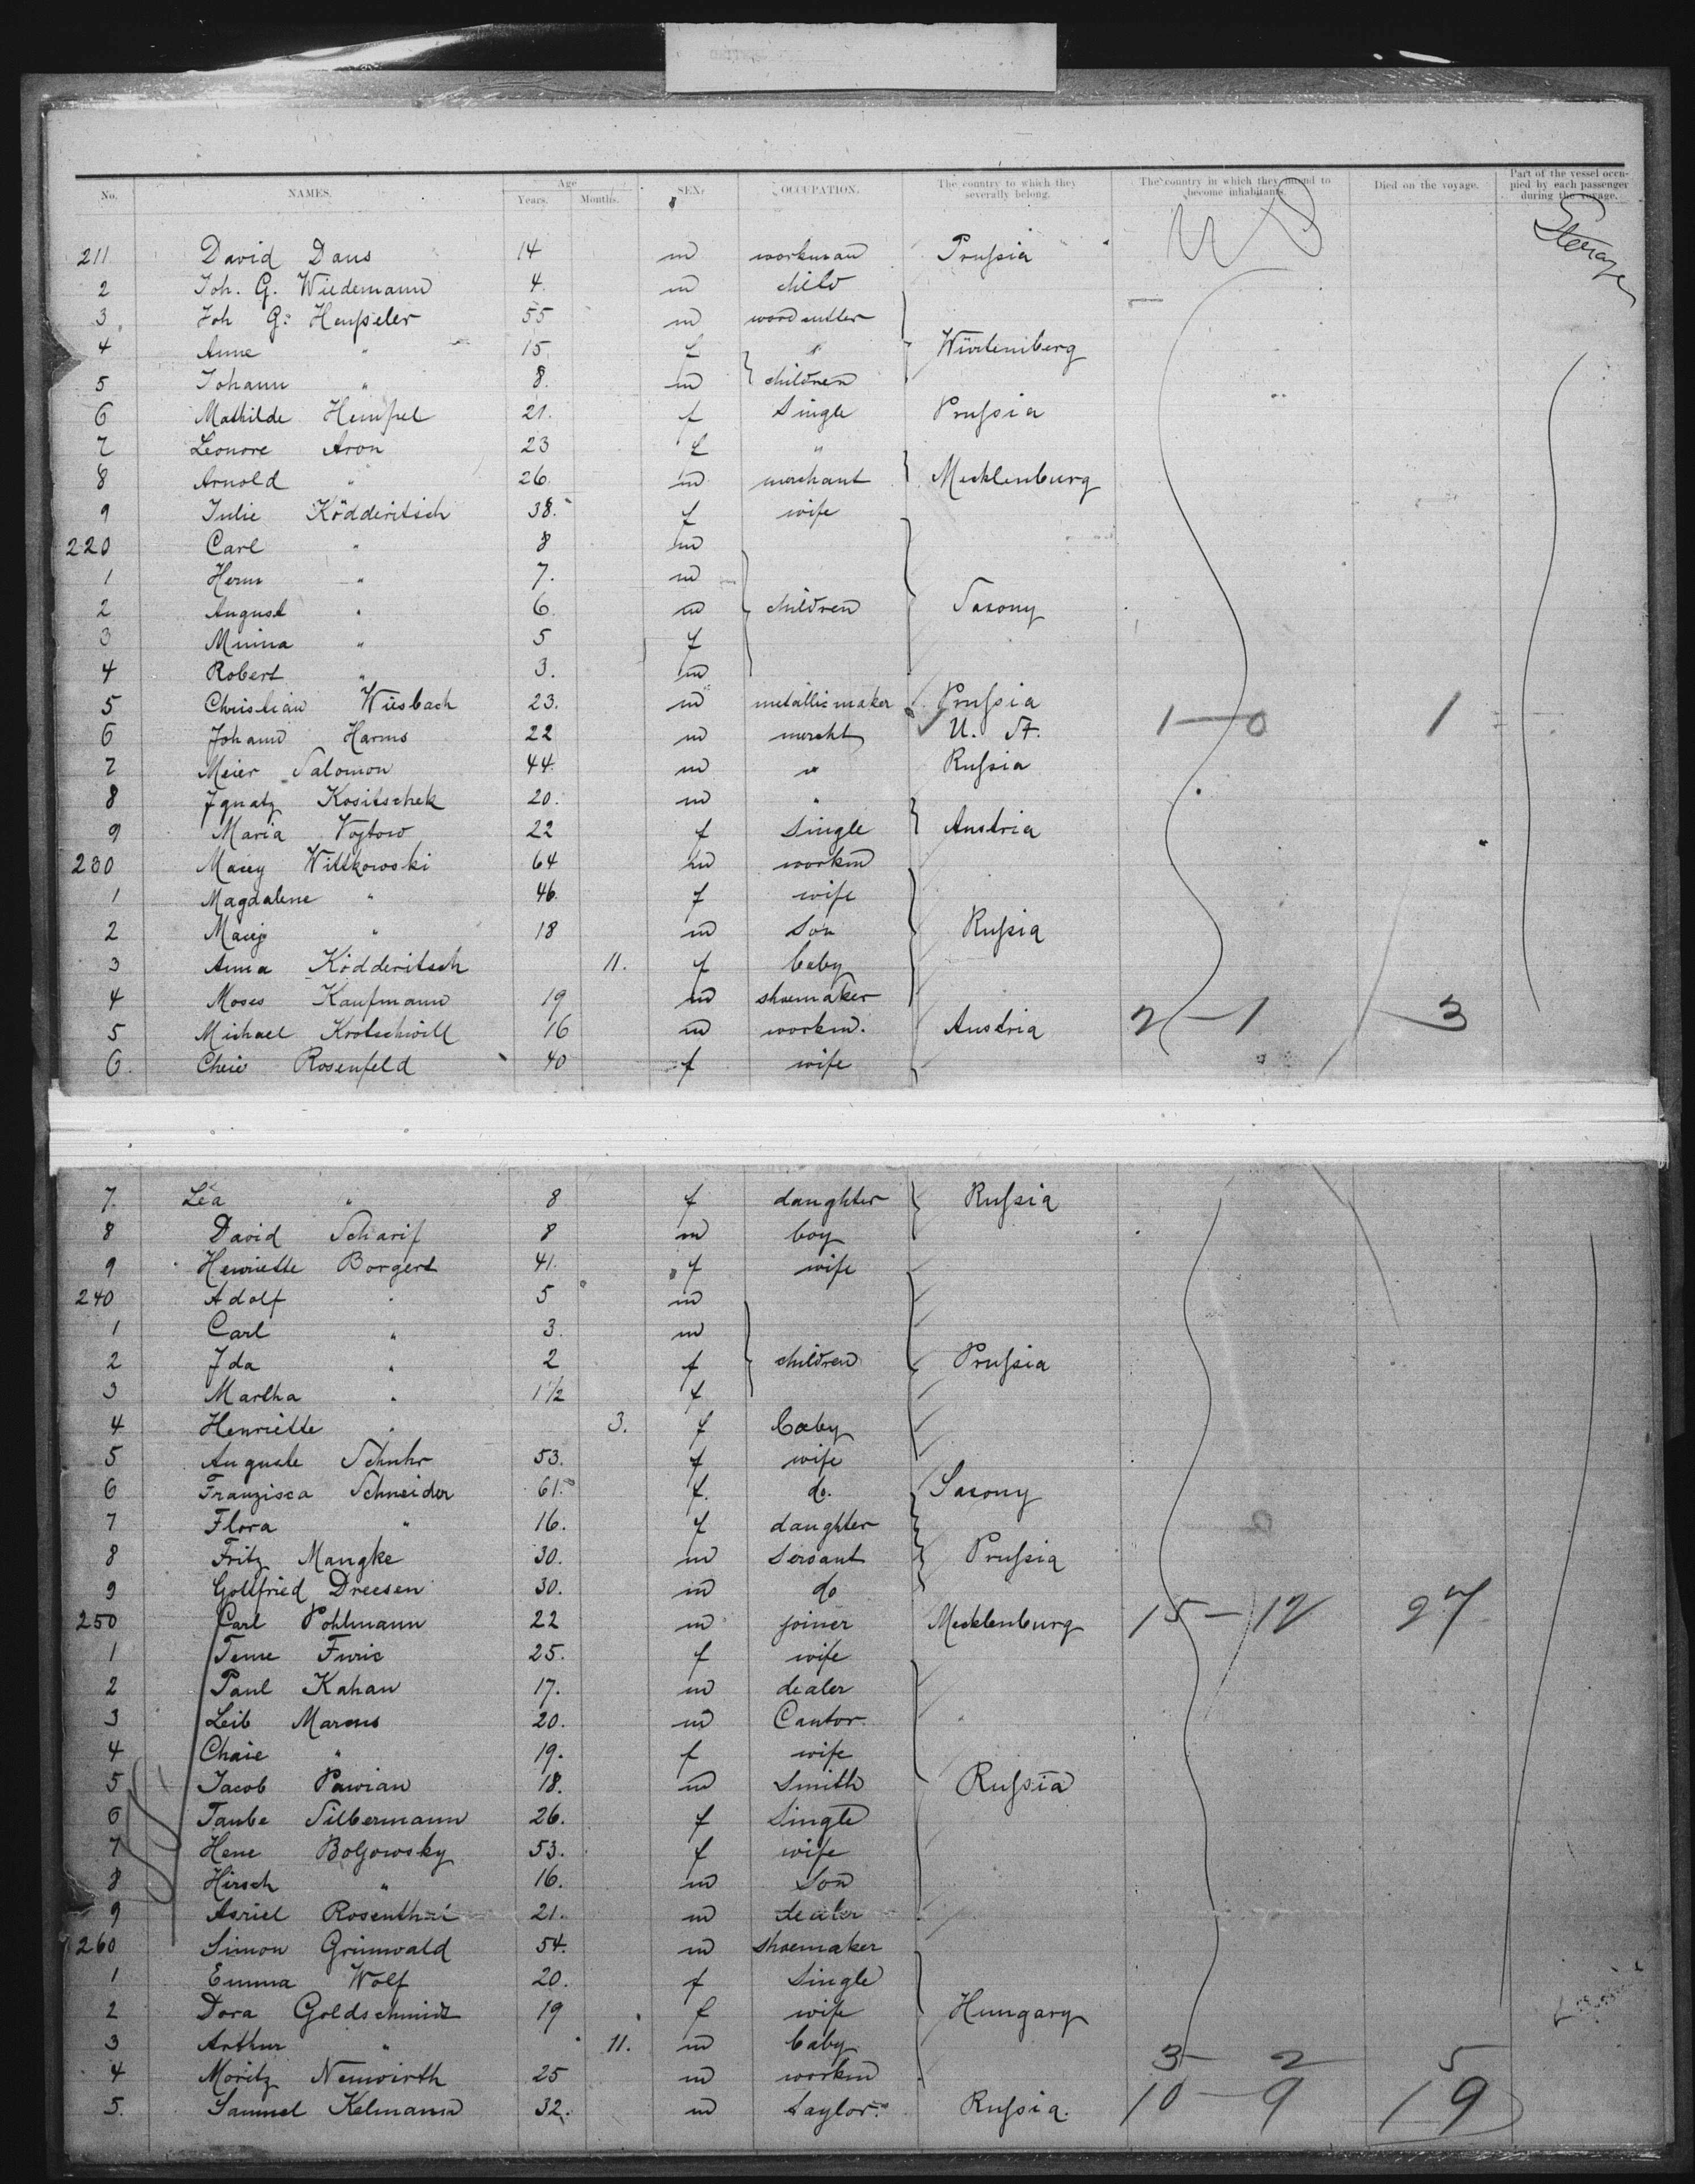 No. NAMES. Age Years. Months. SEX. OCCUPATION. The country to which they severally belong. The country in which they intend to become inhabitants. Died on the voyage. Part of the vessel occupied by each passenger during the voyage.
211 David Daus 14 m workman Prussia U S Steerage
2 Joh. G. Wiedemann 4 m child
3 Joh G. Heusseler 55 m woodcutter
4 Anne " 15 f " Würtemberg
5 Johann " 8 m children
6 Mathilde Hempel 21 f Single Prussia
7 Leonore Aron 23 f "
8 Arnold " 26 m merchant Mecklenburg
9 Julie Ködderitsch 38 f wife
220 Carl " 8 m
1 Herm " 7 m
2 August " 6 m children Saxony
3 Minna " 5 f
4 Robert " 3 m
5 Christian Wiesbach 23 m metallic maker Prussia
6 Johann Harms 22 m mercht U. St. 1 - 0 1
7 Meier Salomon 44 m " Russia
8 Ignatz Kositschek 20 m "
9 Maria Vojtow 22 f Single Austria
230 Macey Wittkowski 64 m workm
1 Magdalene " 46 f wife
2 Maciej " 18 m Son Russia
3 Anna Ködderitsch 11. f baby
4 Moses Kaufmann 19 m shoemaker
5 Michael Krotschwill 16 m workm. Austria 2 - 1 3
6 Cheie Rosenfeld 40 f wife
7. Léa " 8 f daughter Russia
8 David Scharif 8 m boy
9 Henriette Borgert 41. f wife
240 Adolf " 5 m
1 Carl " 3 m
2 Ida " 2 f children Prussia
3 Martha " 1 1/2 f
4 Henriette " 3. f baby
5 Auguste Schuhr 53. f wife
6 Franzisca Schneider 61. f. do. Saxony
7 Flora " 16. f daughter
8 Fritz Mangke 30. m Servant Prussia
9 Gottfried Dreesen 30. m do
250 Carl Pohlmann 22 m joiner Mecklenburg 15 - 12 27
1 Teme Furie 25. f wife
2 Paul Kahan 17. m dealer
3 Leib Marcus 20. m Cantor
4 Chaie " 19. f wife
5 Jacob Pawian 18. m Smith Russia
6 Taube Silbermann 26. f Single
7 Hene Bolzowsky 53. f wife
8 Hirsch " 16. m Son
9 Asriel Rosenthal 21. m dealer
260 Simon Grünwald 54. m shoemaker
1 Emma Wolf 20. f Single
2 Dora Goldschmidt 19 f wife Hungary
3 Arthur " 11. m baby
4 Moritz Neuwirth 25 m workm 3 - 2 5
5. Samuel Kelmann 32. m taylor. Russia. 10 - 9 19